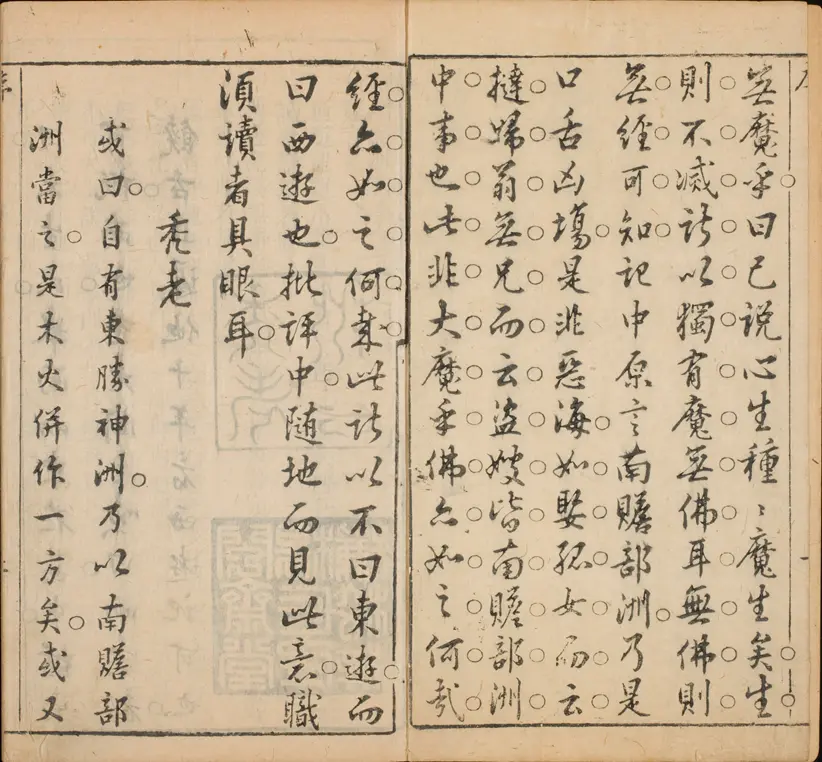 無魔乎曰已說心生種〻魔生矣生
則不滅所以獨有魔無佛耳無佛則
無經可知記中原言南贍部洲乃是
口舌凶場是非惡海如娶孤女而云
撻婦翁無兄而云盜嫂皆南贍部洲
中事也此非大魔乎佛亦如之何哉
經亦如之何哉此所以不曰東遊而
曰西遊也批評中隨地而見此意職
須讀者具眼耳
禿老
或曰自有東勝神洲乃以南贍部
洲當之是木火併作一方矣或又